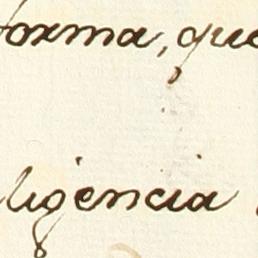 forma, que
ligencia